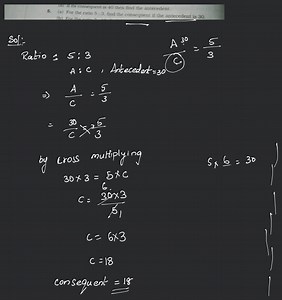 find the antecedent.
8. (a) For the ratio 5 : 3, find the consequent if the antecedent is 30.
Sol:
Ratio : 5 : 3
A : C , Antecedent = 30
A 30 / C = 5 / 3
⇒ A / C = 5 / 3
= 30 / C = 5 / 3
by cross multiplying
5 x 6 = 30
30 x 3 = 5 x C
C = 30 x 3 / 5
6
1
C = 6 x 3
C = 18
Consequent = 18